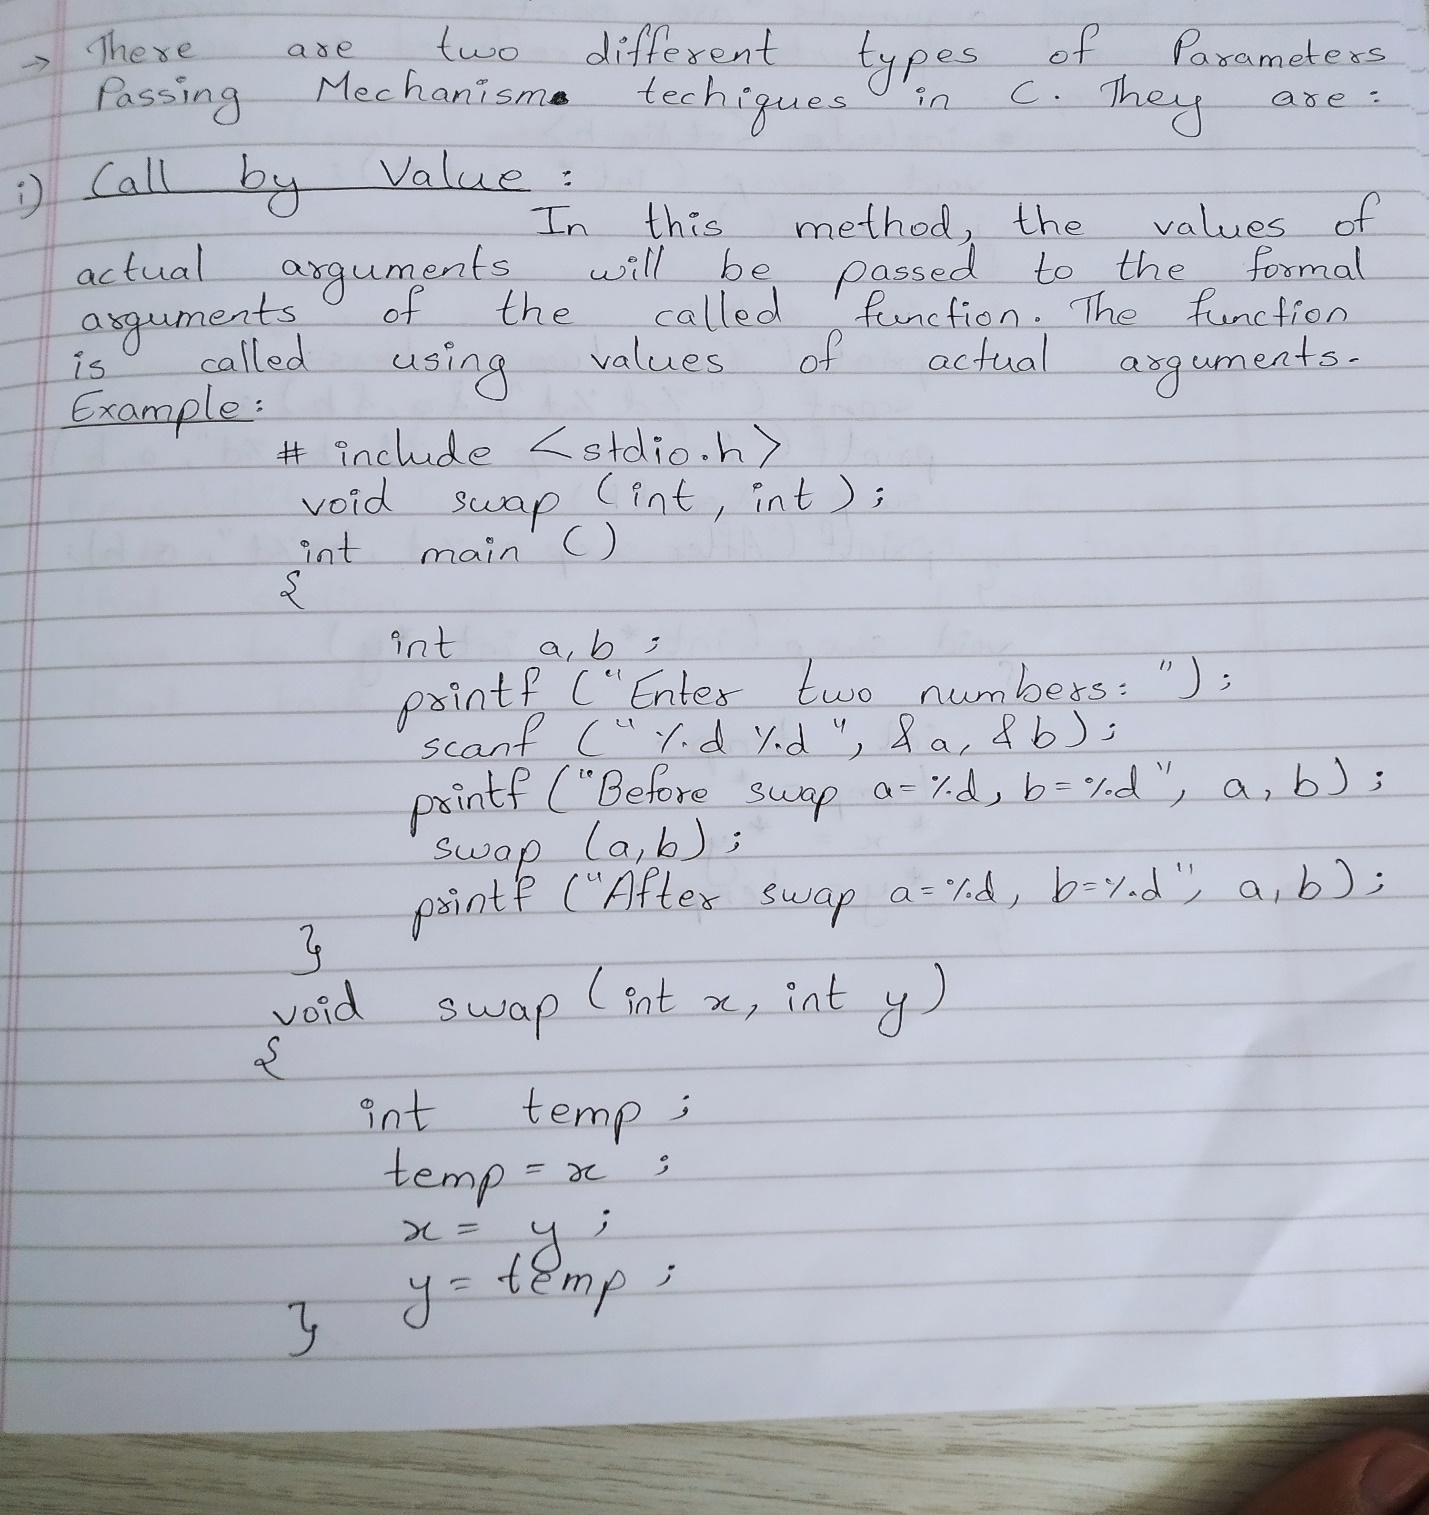 → There are two different types of Parameters
Passing Mechanism techiques in C. They are:
i) Call by Value:
In this method, the values of
actual arguments will be passed to the formal
arguments of the called function. The function
is called using values of actual arguments.
Example:
# include <stdio.h>
void swap (int, int);
int main ()
{
int a, b;
printf ("Enter two numbers: ");
scanf ("%d %d", &a, &b);
printf ("Before swap a=%d, b=%d", a, b);
swap (a, b);
printf ("After swap a=%d, b=%d", a, b);
}
void swap (int x, int y)
{
int temp;
temp = x;
x = y;
y = temp;
}